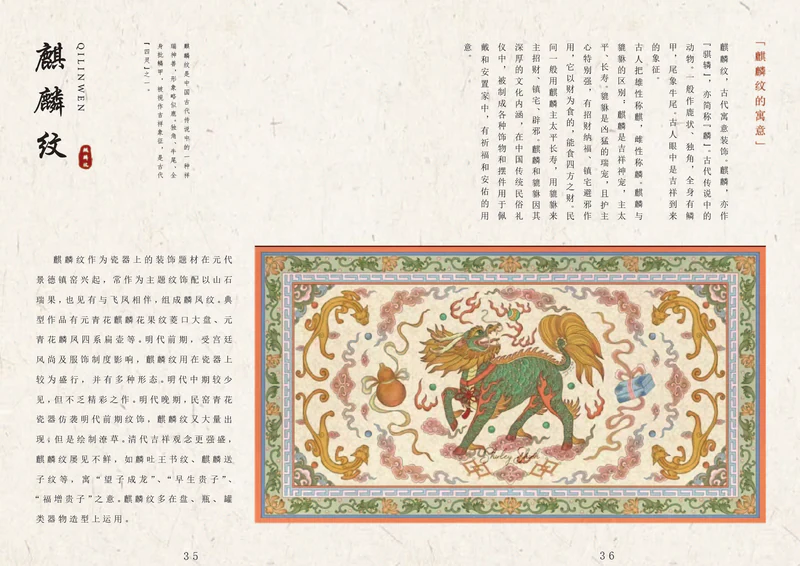 麒麟纹
QILINWEN
麒麟纹是中国古代传说中的一种祥
瑞神兽，形象略似鹿。独角、牛尾，全
身批鳞甲，被视作吉祥象征，是古代
【四灵】之一。
麒麟纹作为瓷器上的装饰题材在元代
景德镇窑兴起，常作为主题纹饰配以山石
瑞果，也见有与飞凤相伴，组成麟凤纹。典
型作品有元青花麒麟花果纹菱口大盘、元
青花麟凤四系扁壶等。明代前期，受宫廷
风尚及服饰制度影响，麒麟纹用在瓷器上
较为盛行，并有多种形态。明代中期较少
见，但不乏精彩之作。明代晚期，民窑青花
瓷器仿袭明代前期纹饰，麒麟纹又大量出
现；但是绘制潦草。清代吉祥观念更强盛，
麒麟纹屡见不鲜，如麟吐王书纹、麒麟送
子纹等，寓“望子成龙”、“早生贵子”、
“福增贵子”之意。麒麟纹多在盘、瓶、罐
类器物造型上运用。
35
「麒麟纹的寓意」
麒麟纹，古代寓意装饰。麒麟，亦作
『骐驎』，亦简称『麟』。古代传说中的
动物。一般作鹿状，独角，全身有鳞
甲，尾象牛尾。古人眼中是吉祥到来
的象征。
古人把雄性称麒，雌性称麟。麒麟与
貔貅的区别；麒麟是吉祥神宠，主太
平、长寿。貔貅是凶猛的瑞宠，且护主
心特别强，有招财纳福、镇宅避邪作
用，它以财为食的，能食四方之财。民
间一般用麒麟主太平长寿，用貔貅来
主招财、镇宅、辟邪。麒麟和貔貅因其
深厚的文化内涵，在中国传统民俗礼
仪中，被制成各种饰物和摆件用于佩
戴和安置家中，有祈福和安佑的用
意。
36